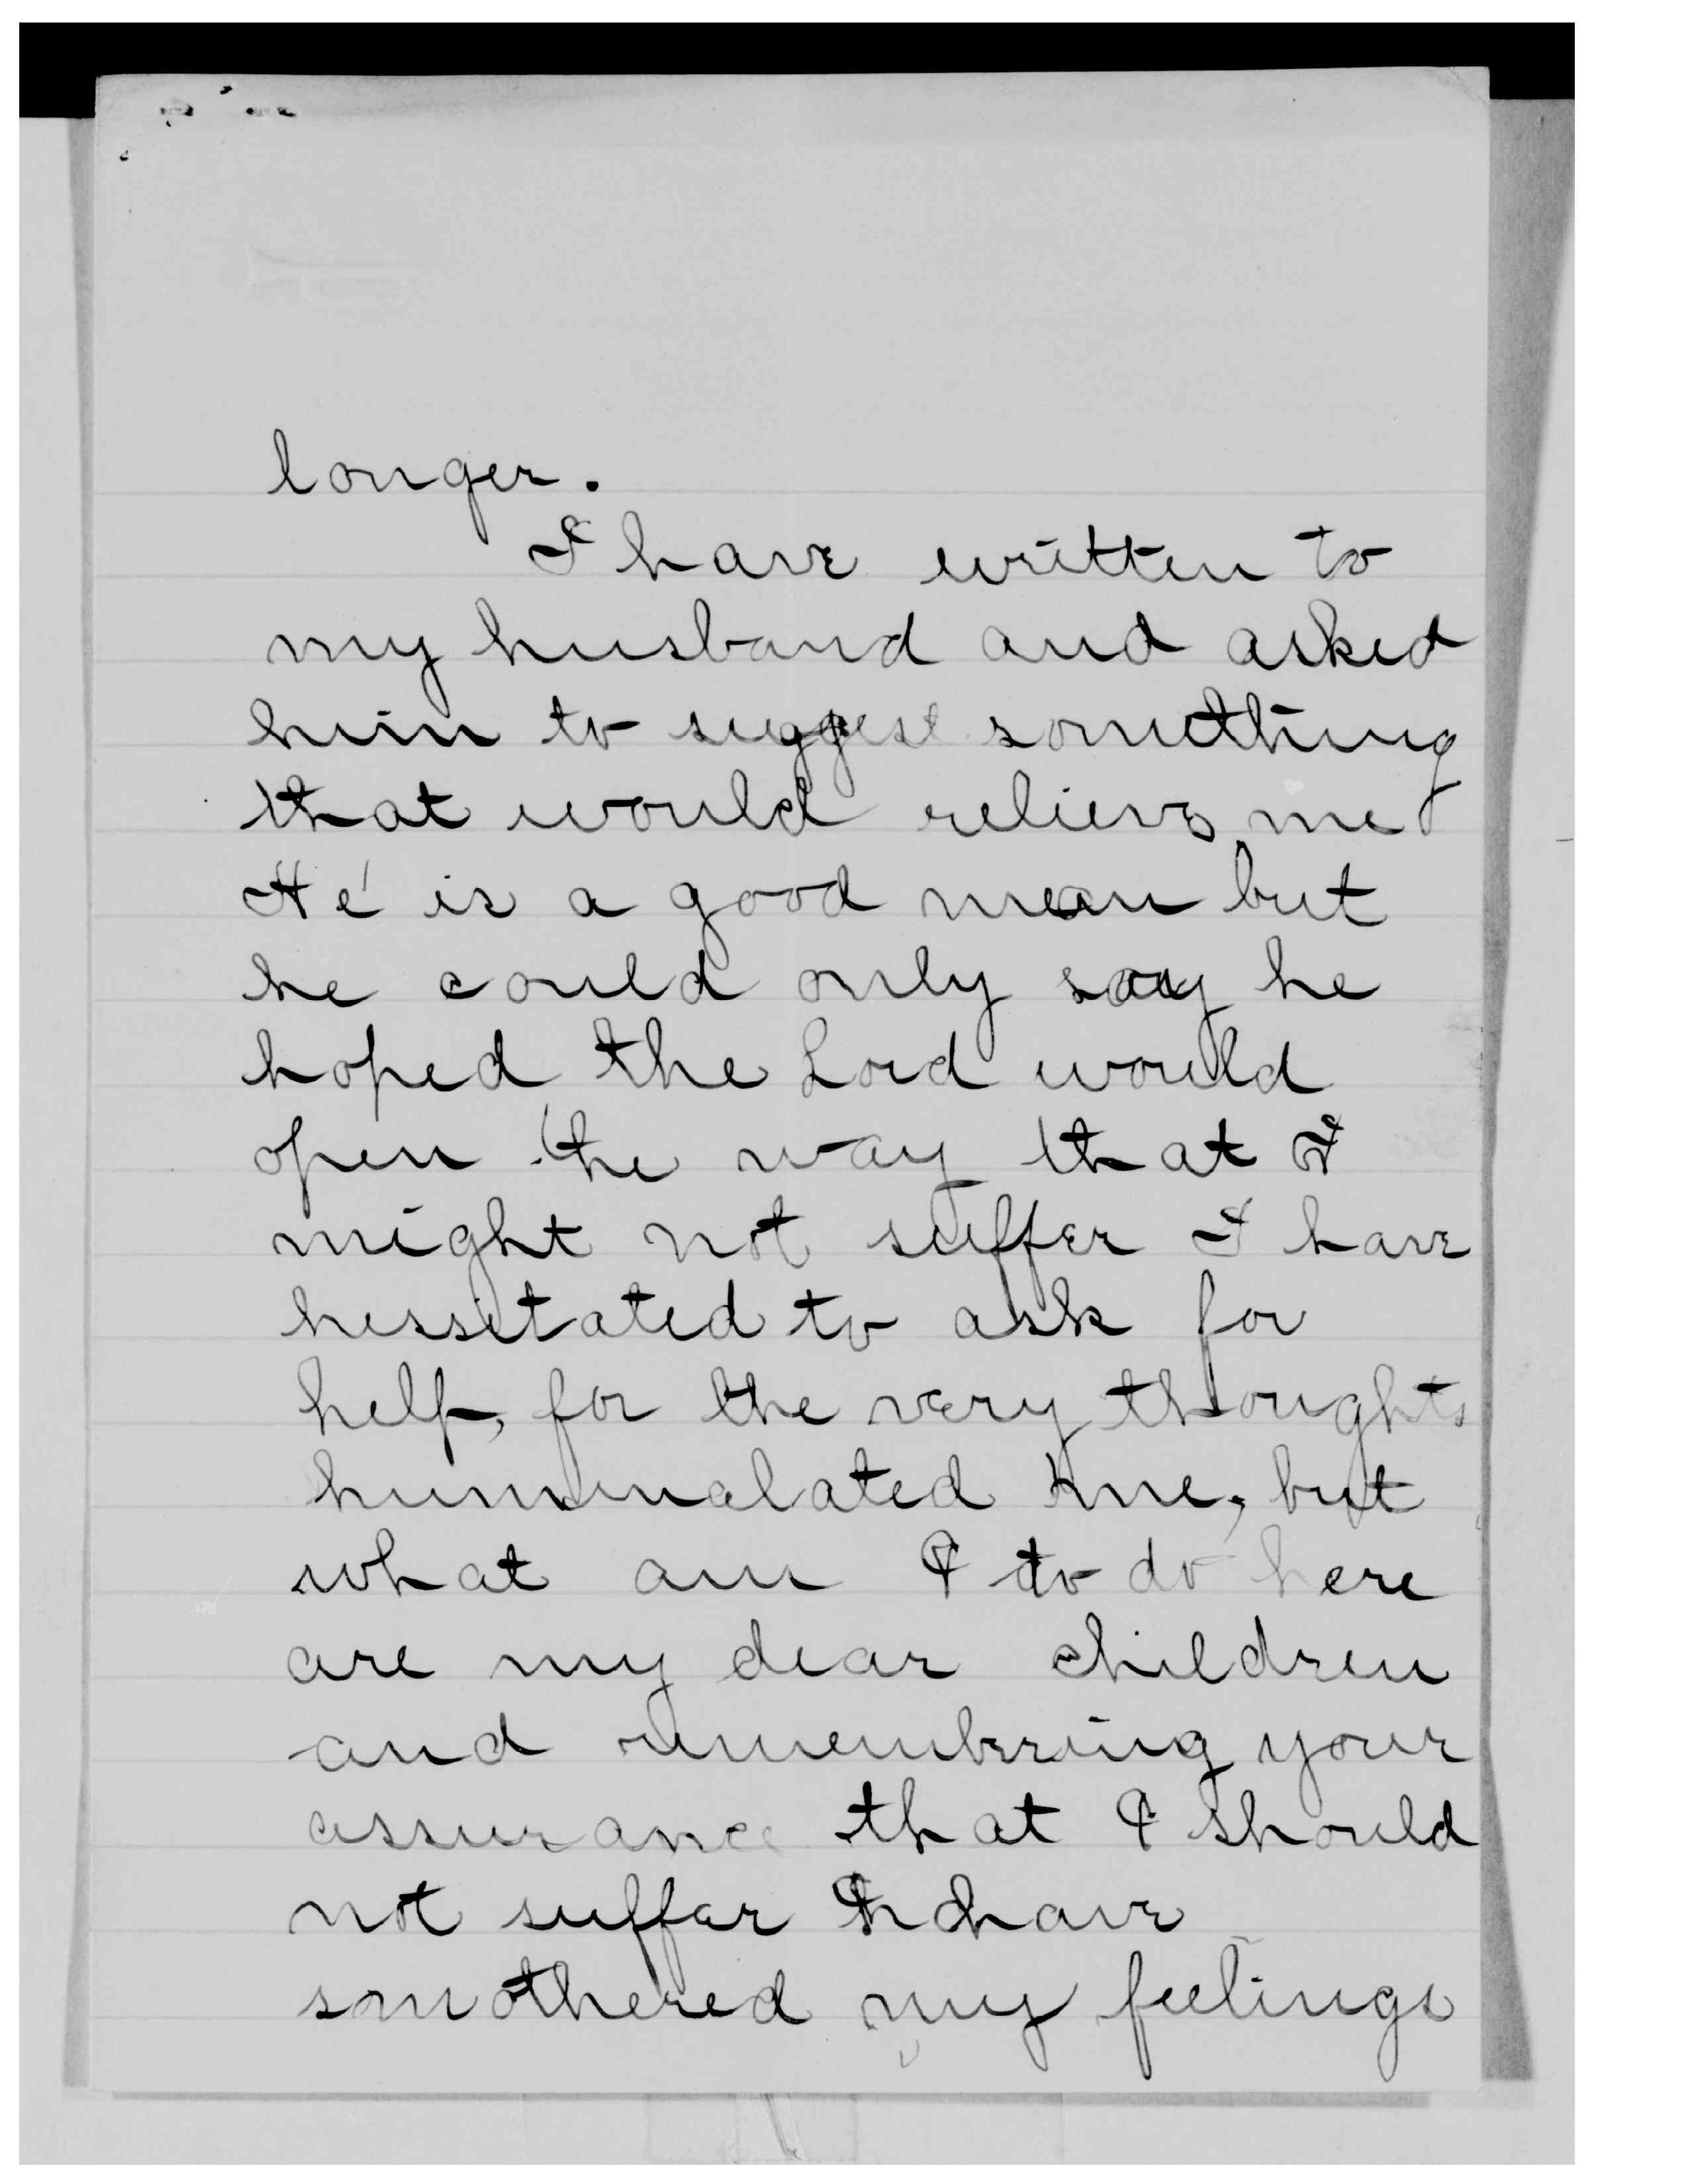 longer.
I have written to
my husband and asked
him to suggest something
that would relieve me
He is a good man but
he could only say he
hoped the Lord would
open the way that I
might not suffer I have
hessitated to ask for
help, for the very thoughts
humnalated me, but
what am I to do here
are my dear children
and remembering your
assurance that I should
not suffer I have
smothered my feelings